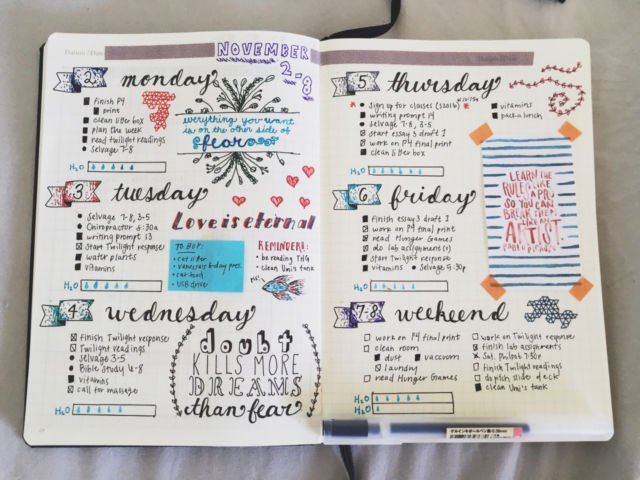 Datum / Date
NOVEMBER
2-8
2 monday
finish P4
print
clean litter box
plan the week
read twilight readings
Selvage 7-8
H2O
everything you want
is on the other side of
fear
3 tuesday
Selvage 7-8, 3-5
Chiropractor 6:30a
writing prompt 13
Start Twilight response
water plants
vitamins
H2O
Love is eternal
TO BUY:
cat litter
cat food
USB drive
REMINDERS:
be reading THG
clean Umi's tank
4 wednesday
finish Twilight response
Twilight readings
Selvage 3-5
Bible Study 6-8
vitamins
call for massage
H2O
doubt
KILLS MORE
DREAMS
than fear
5 thursday
Sign up for classes (3206)
writing prompt 14
Selvage 7-8, 3-5
start essay 3 draft 1
work on P4 final print
clean litter box
vitamins
pack a lunch
H2O
LEARN THE
RULES LIKE
A PRO,
SO YOU CAN
BREAK THEM
LIKE AN
ARTIST.
PABLO PICASSO
6 friday
finish essay 3 draft 1
work on P4 final print
read Hunger Games
do lab assignment(s)
start Twilight response
vitamins
Selvage 5:30p
H2O
7-8 weekend
work on P4 final print
clean room
dust
vacuum
laundry
read Hunger Games
work on Twilight response
finish lab assignments
7:30p
finish Twilight readings
do pitch slide deck
clean Umi's tank
H2O
H2O